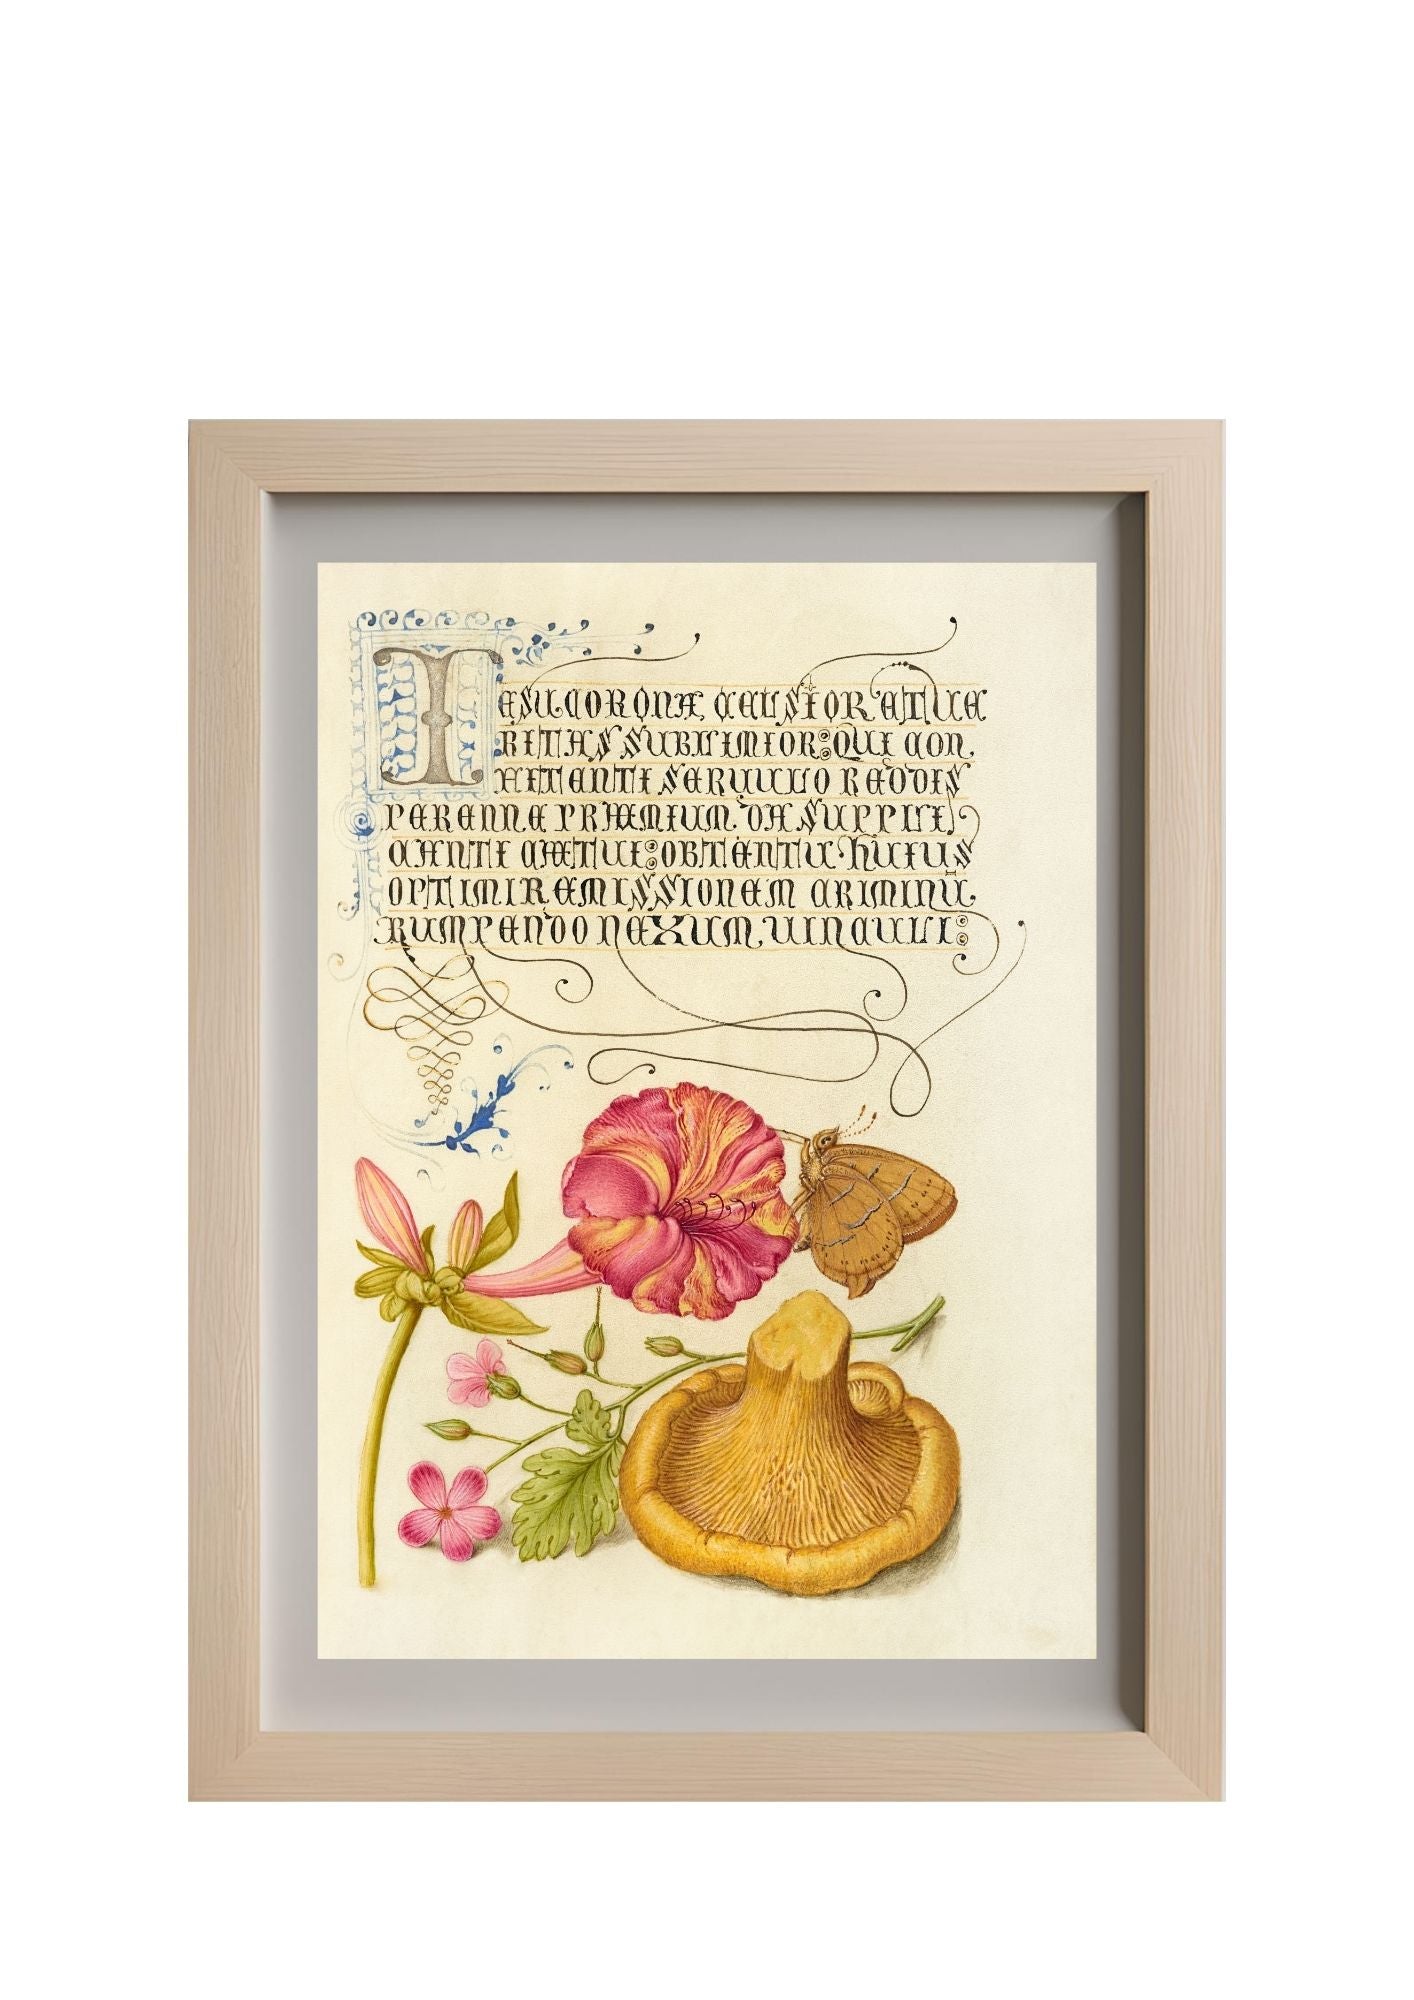 IESU CORONA CELSIOR ET UE
RITAS SUBLIMIOR: QUI CON
FITENTI SERUULO REDDIS
PERENNE PRÆMIUM. DA SUPPLI
CANTI CÆTUI: OBTENTU HUIUS
OPTIMI REMISSIONEM CRIMINU
RUMPENDO NEXUM UINCULI: